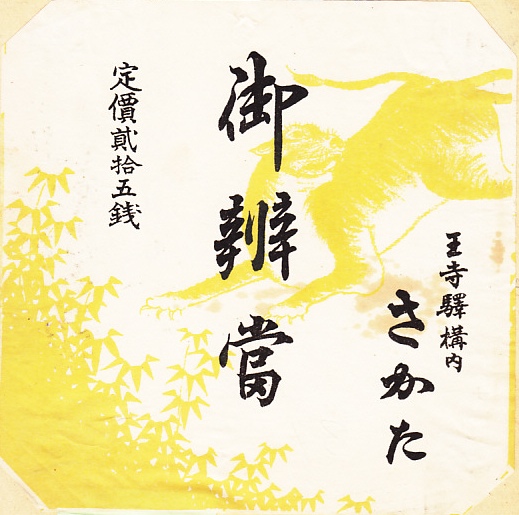 王寺驛構内
さかた
御辨當
定價貳拾五銭